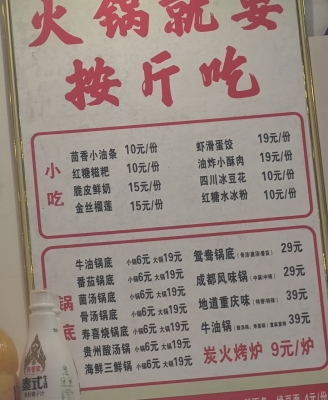 火锅就要
按斤吃
小吃
茴香小油条 10元/份
红糖糍粑 10元/份
脆皮鲜奶 15元/份
金丝榴莲 15元/份
虾滑蛋饺 19元/份
油炸小酥肉 19元/份
四川冰豆花 10元/份
红糖水冰粉 10元/份
锅底
牛油锅底 小锅6元 大锅19元
番茄锅底 小锅6元 大锅19元
菌汤锅底 小锅6元 大锅19元
骨汤锅底 小锅6元 大锅19元
寿喜烧锅底 小锅6元 大锅19元
贵州酸汤锅 小锅6元 大锅19元
海鲜三鲜锅 小锅6元 大锅19元
鸳鸯锅底 29元
成都风味锅 29元
地道重庆味 39元
牛油锅 39元
炭火烤炉 9元/炉
泰式
4元/份